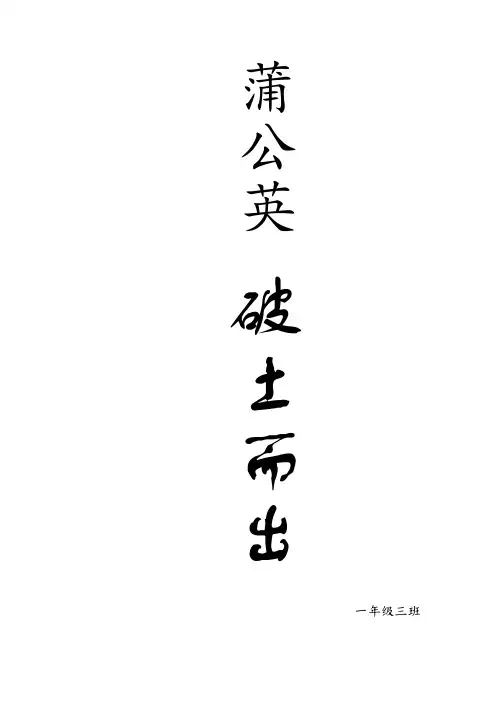 蒲公英
破土而出
一年级三班